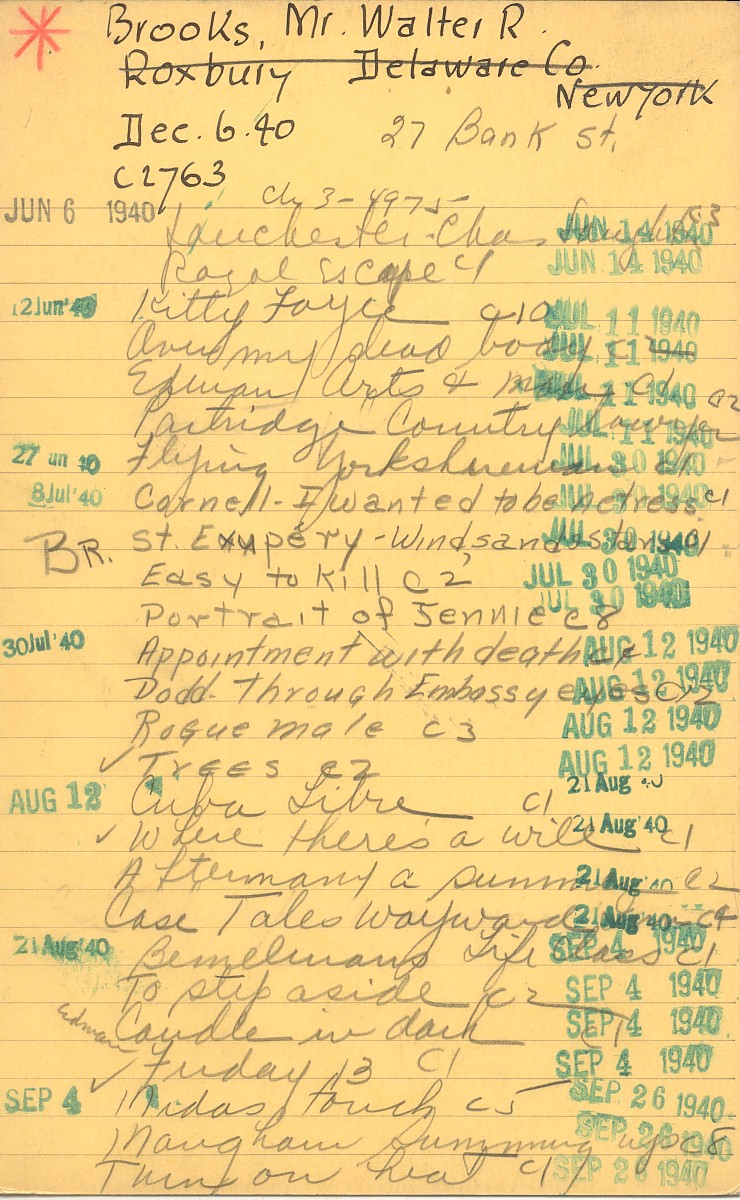 Brooks, Mr. Walter R.
Roxbury Delaware Co.
New York
Dec. 6. 40 27 Bank St.
C2763
Ch 3-4975
JUN 6 1940 Lanchester-Chas C3 JUN 14 1940
Royal Escape c1 JUN 14 1940
12 Jun '40 Kitty Foyle c10 JUL 11 1940
Over my dead body c2 JUL 11 1940
Edman Arts & man c1 JUL 11 1940
Partridge Country Lawyer c2 JUL 11 1940
27 un 40 Flying Yorkshireman c1 JUL 30 1940
8 Jul '40 Cornell-I wanted to be Actress c1 JUL 30 1940
BR. St. Exupéry-Wind, sand & stars c1 JUL 30 1940
Easy to Kill c2 JUL 30 1940
Portrait of Jennie c8 JUL 30 1940
30 Jul '40 Appointment with death AUG 12 1940
Dodd-Through Embassy eyes c2 AUG 12 1940
Rogue male c3 AUG 12 1940
✓ Trees c2 AUG 12 1940
AUG 12 Cuba Libre c1 21 Aug 40
✓ Where there's a will c1 21 Aug '40
After many a summer c2 21 Aug 40
Case Tales Wayward c4 21 Aug '40
21 Aug '40 Bemelmans Life Class c1 SEP 4 1940
To step aside c2 SEP 4 1940
Edman Candle in dark c1 SEP 4 1940
✓ Friday 13 c1 SEP 4 1940
SEP 4 Midas touch c5 SEP 26 1940
Maugham Summing up c8 SEP 26 1940
Turn on heat c1 SEP 26 1940